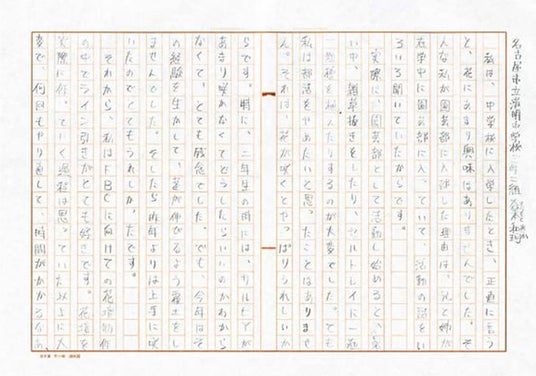 名古屋市立港明中学校
私は、中学校に入学したとき、正直に言う
と、花にあまり興味はありませんでした。そ
んな私が園芸部に入部した理由は、兄と姉が
在学中に園芸部に入っていて、活動の話をい
ろいろ聞いていたからです。
実際に、園芸部として活動し始めると、暑
い中、雑草抜きをしたり、セルトレイに一粒
一粒種を植えたりするのが大変でした。でも
私は部活をやめたいと思ったことはありませ
ん。それは、花が咲くとやっぱりうれしいか
らです。特に、二年生の時には、サルビアが
あまり咲かなくてどうしたらいいのかわから
なくて、とても残念でした。でも、今年はそ
の経験を生かして、茎が伸びるよう養土をし
ませんでした。そしたら昨年よりは上手に咲
いたのでとてもうれしかったです。
それから、私はFBCに向けての花壇制作
の中でライン引きがとても好きです。花壇を
実際に作っていく過程は思っていたよりも大
変で、何回もやり直して、時間がかかるなあ、